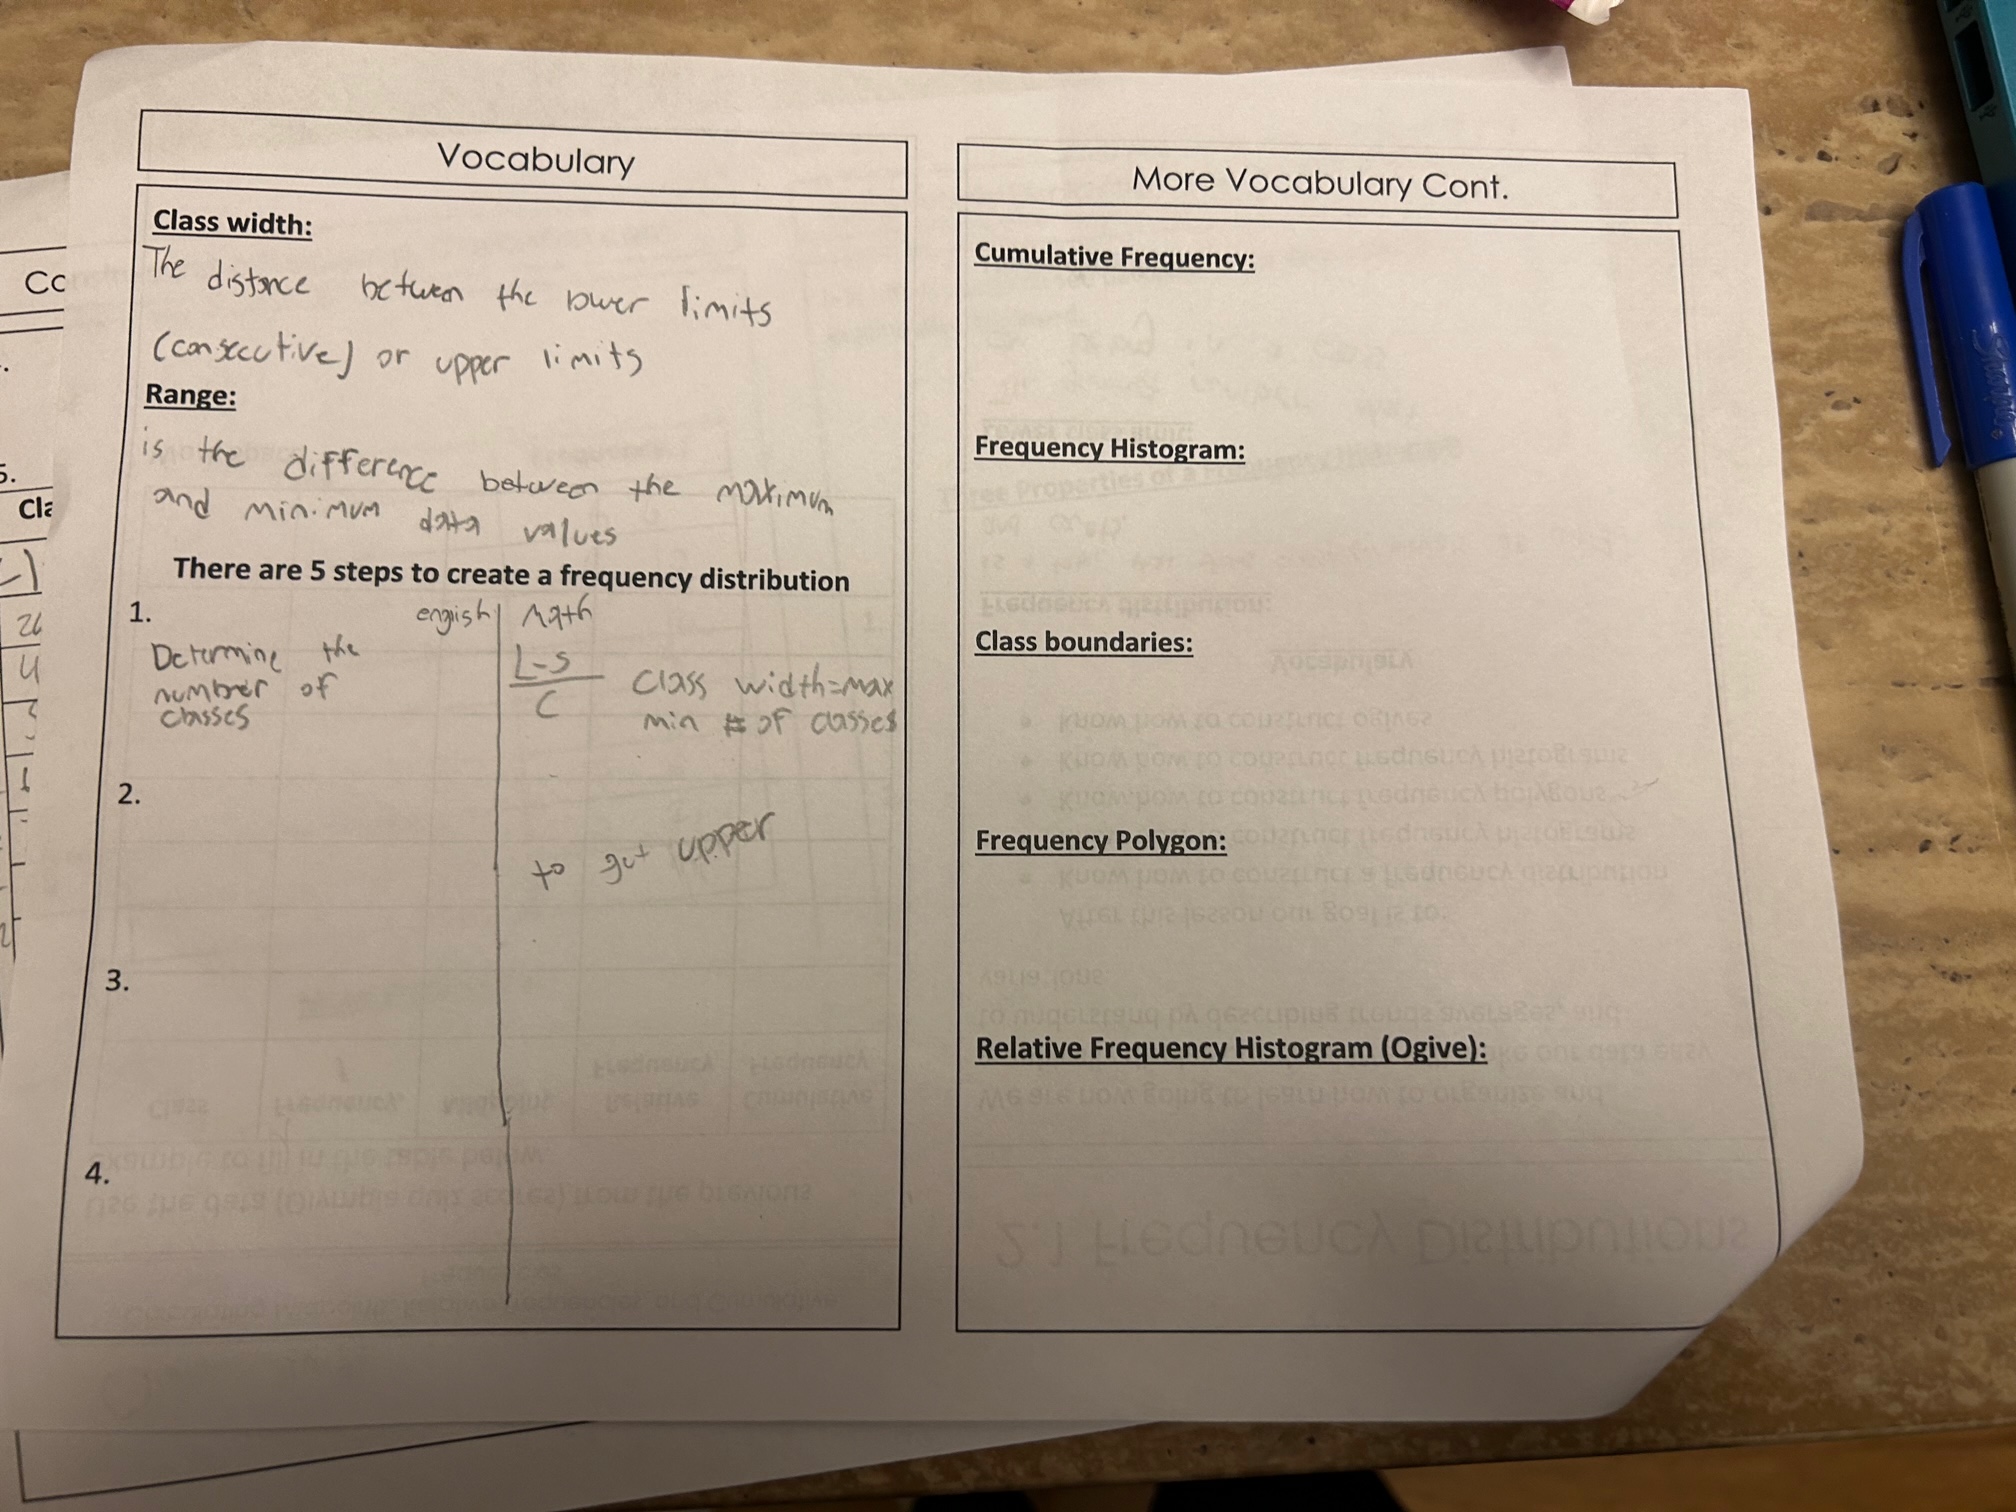 Vocabulary
Class width:
The distance between the lower limits
(consecutive) or upper limits
Range:
is the difference between the maximum
and minimum data values
There are 5 steps to create a frequency distribution
1.
engish | Math
Determine the
number of
classes
L-S
C
Class width=max
min # of classes
2.
to get upper
3.
4.
More Vocabulary Cont.
Cumulative Frequency:
Frequency Histogram:
Class boundaries:
Frequency Polygon:
Relative Frequency Histogram (Ogive):
Co
5.
Cla
26
4
Sharpie